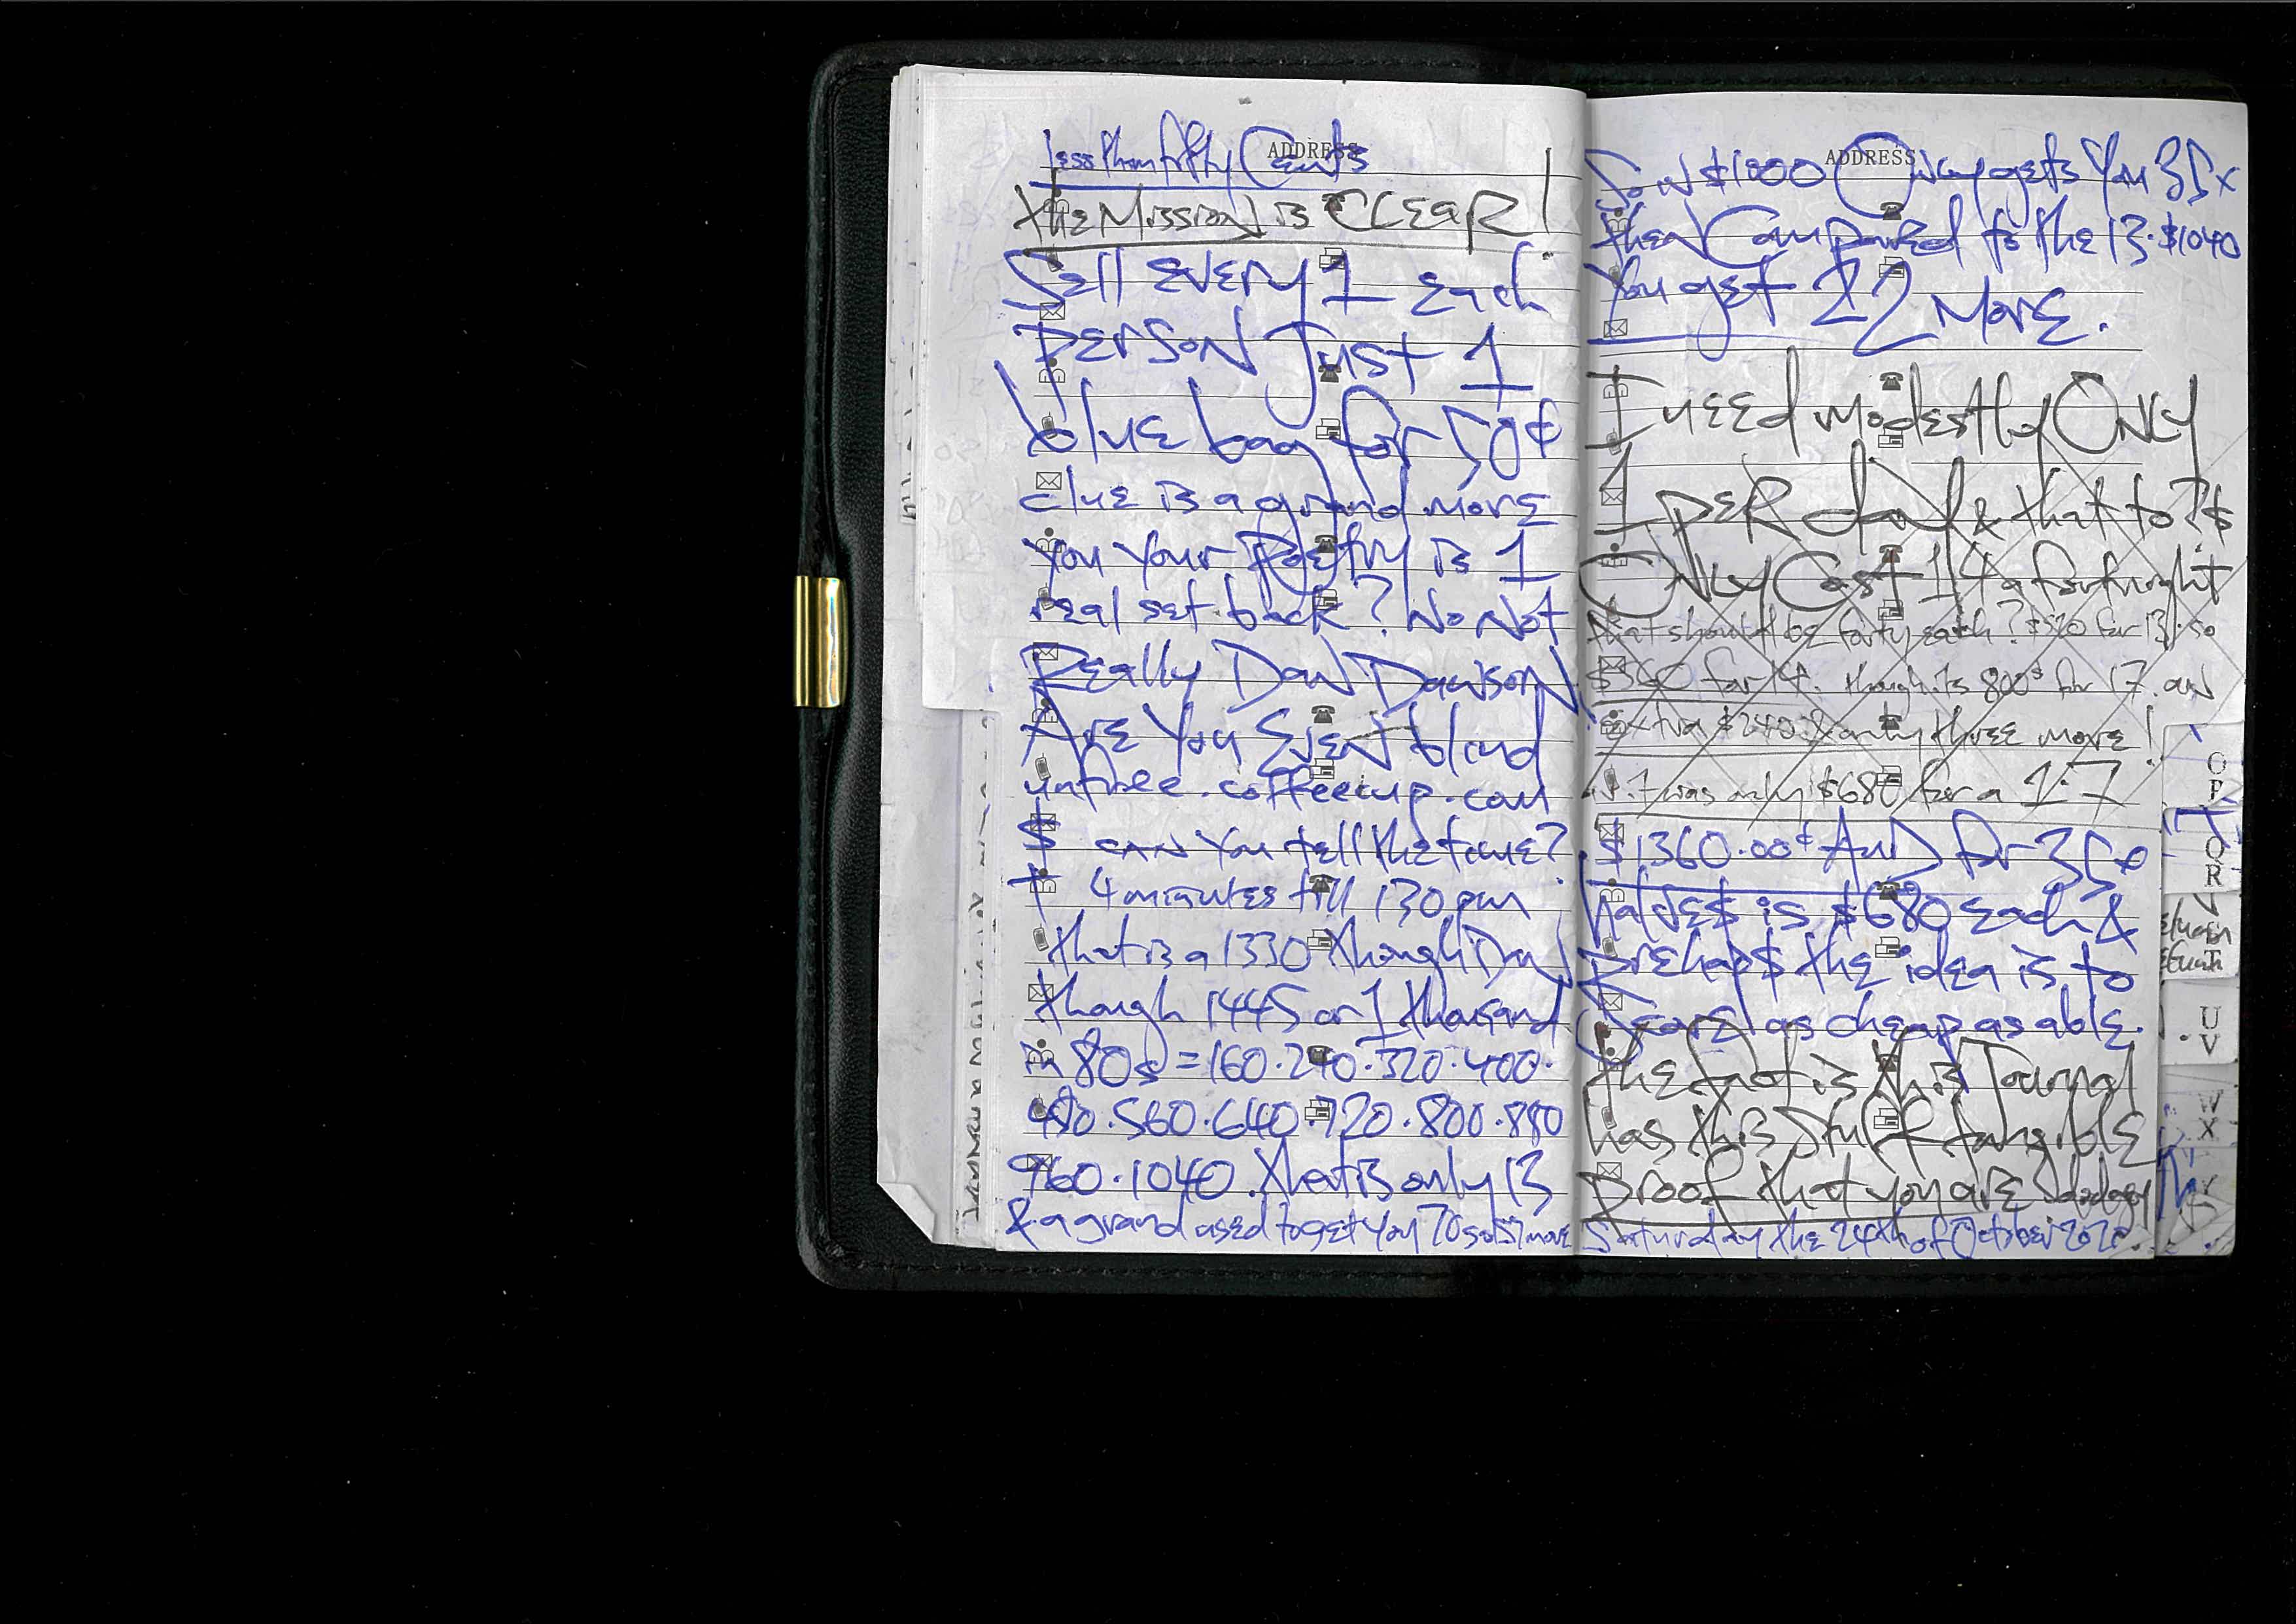 ADDRESS
less than fifty Cents
the Mission is CLEAR!
Sell every 1 each
person Just 1
blue bag for 50¢
clue is a grand more
you your Poetry is 1
real set.back? No Not
Really Dan Dawson
Are You Even blind
. coffeecup.com
$ can You tell the time?
4 minutes till 130pm
that is a 1330 though Day
though 1445 or 1 thousand
in 80s = 160.240.320.400.
480.560.640.720.800.880
960.1040. that is only 13
& a grand used to get you 70 so 57 more
ADDRESS
So N $1000 Only gets You 35x
then Compared to the 13.$1040
You get 22 More.
I need modestly ONLY
1 PER day & that to?$
ONLY Cost 14 a fortnight
that should be forty each? $520 for 13. so
$560 for 14. though its 800$ for 17. an
extra $240 & only three more!
it was only $680 for a 1.7
$1360.00¢ And for 35
halves is $680 each &
Prehap$ the idea is to
Score as cheap as able.
the fact is this Journal
has this stuff tangible
Proof that you are
Saturday the 24th of October 2020
O
P
Q
R
T
U
V
W
X
Y